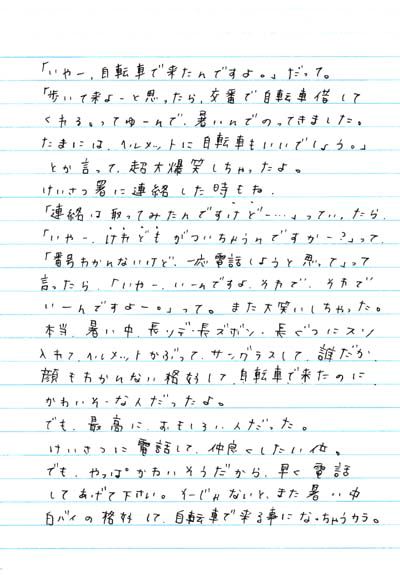 「いやー、自転車で来たんですよ。」だって。
「歩いて来よーと思ったら、交番で自転車借して
くれる。ってゆーんで、暑いんでのってきました。
たまには、ヘルメットに自転車もいいでしょう。」
とか言って、超大爆笑しちゃったよ。
けいさつ署に連絡した時もね、
「連絡は取ってみたんですけどー…」っていったら、
「いやー、けれどもがついちゃうんですかー?」って、
「番号わかんないけど、一応電話しようと思って」って
言ったら、「いやー、いーんですよ、それで、それで
いーんですよー。」って。また大笑いしちゃった。
本当、暑い中、長ソデ・長ズボン・長ぐつにスソ
入れて、ヘルメットかぶって、サングラスして、誰だか
顔もわかんない格好して、自転車で来たのに
かわいそーな人だったよ。
でも、最高に、おもしろい人だった。
けいさつに電話して、仲良くしたい仏。
でも、やっぱかわいそうだから、早く電話
してあげて下さい。そーじゃないと、また暑い中
白バイの格好して、自転車で来る事になっちゃうカラ。